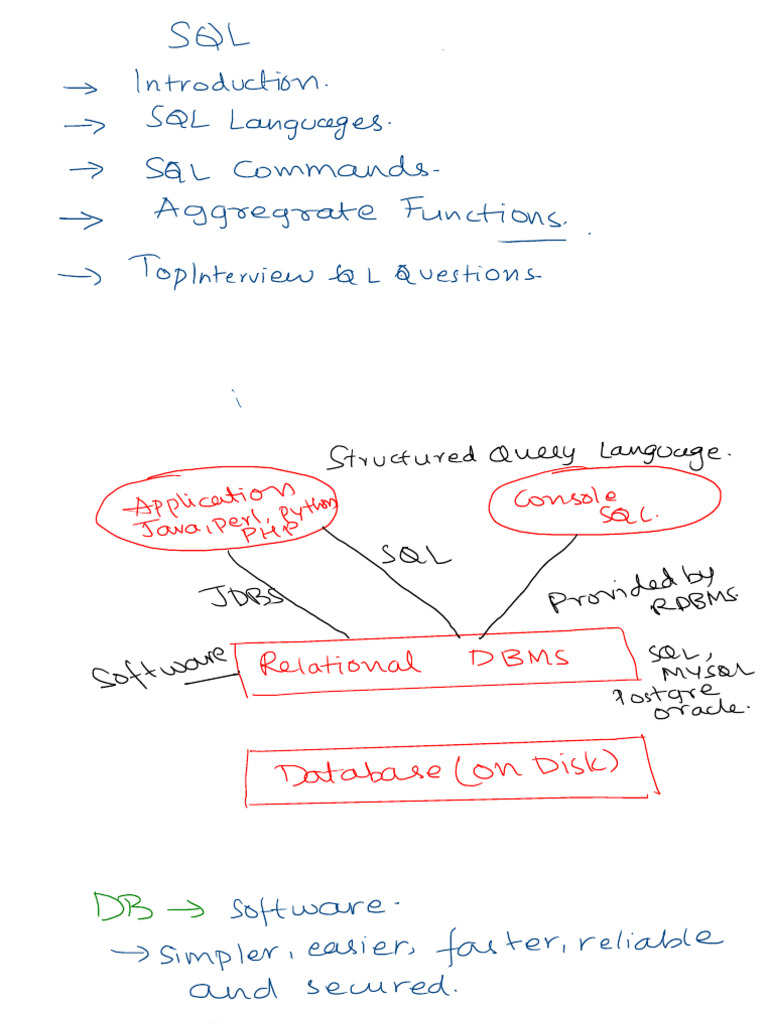 SQL
→ Introduction.
→ SQL Languages.
→ SQL Commands.
→ Aggregrate Functions.
→ TopInterview SQL Questions.
i
Structured Query Language.
Application
Java, perl, python
PHP
Console
SQL.
SQL
JDBS
Provided by
RDBMS.
Software
Relational DBMS
SQL,
MySQL
Postgre
oracle.
Database (on Disk)
DB → software.
→ simpler, easier, faster, reliable
and secured.